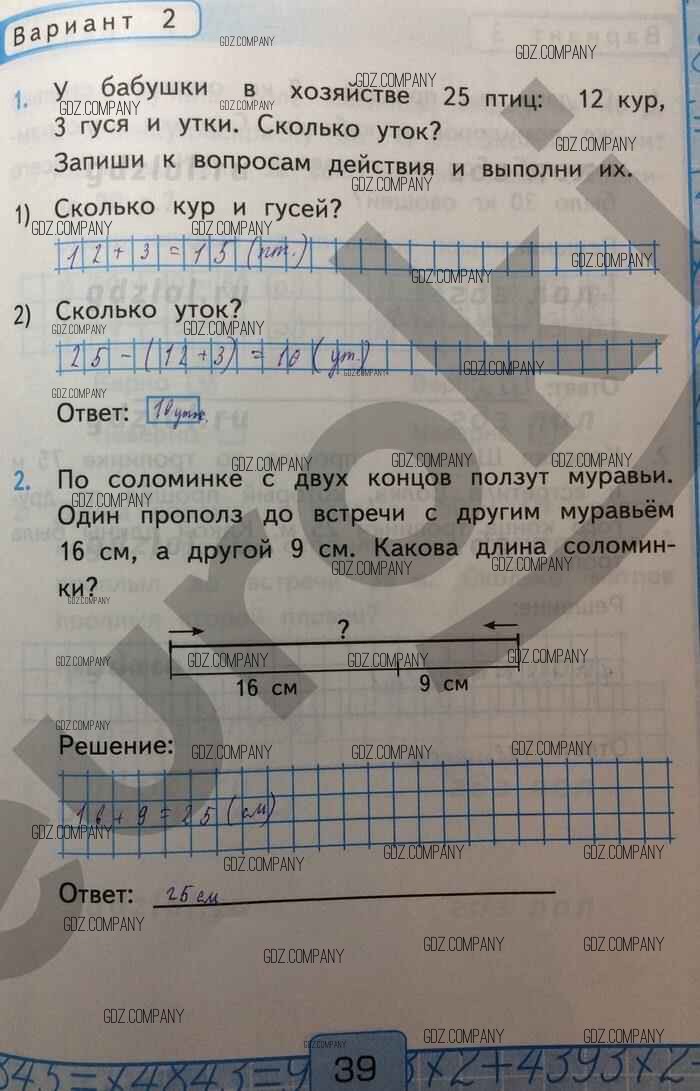 Вариант 2
1. У бабушки в хозяйстве 25 птиц: 12 кур,
3 гуся и утки. Сколько уток?
Запиши к вопросам действия и выполни их.
1) Сколько кур и гусей?
12 + 3 = 15 (пт.)
2) Сколько уток?
25 - (12 + 3) = 10 (ут.)
Ответ: 10 ут.
2. По соломинке с двух концов ползут муравьи.
Один прополз до встречи с другим муравьём
16 см, а другой 9 см. Какова длина соломин-
ки?
?
16 см 9 см
Решение:
16 + 9 = 25 (см)
Ответ: 25 см
39
GDZ.COMPANY
euroki